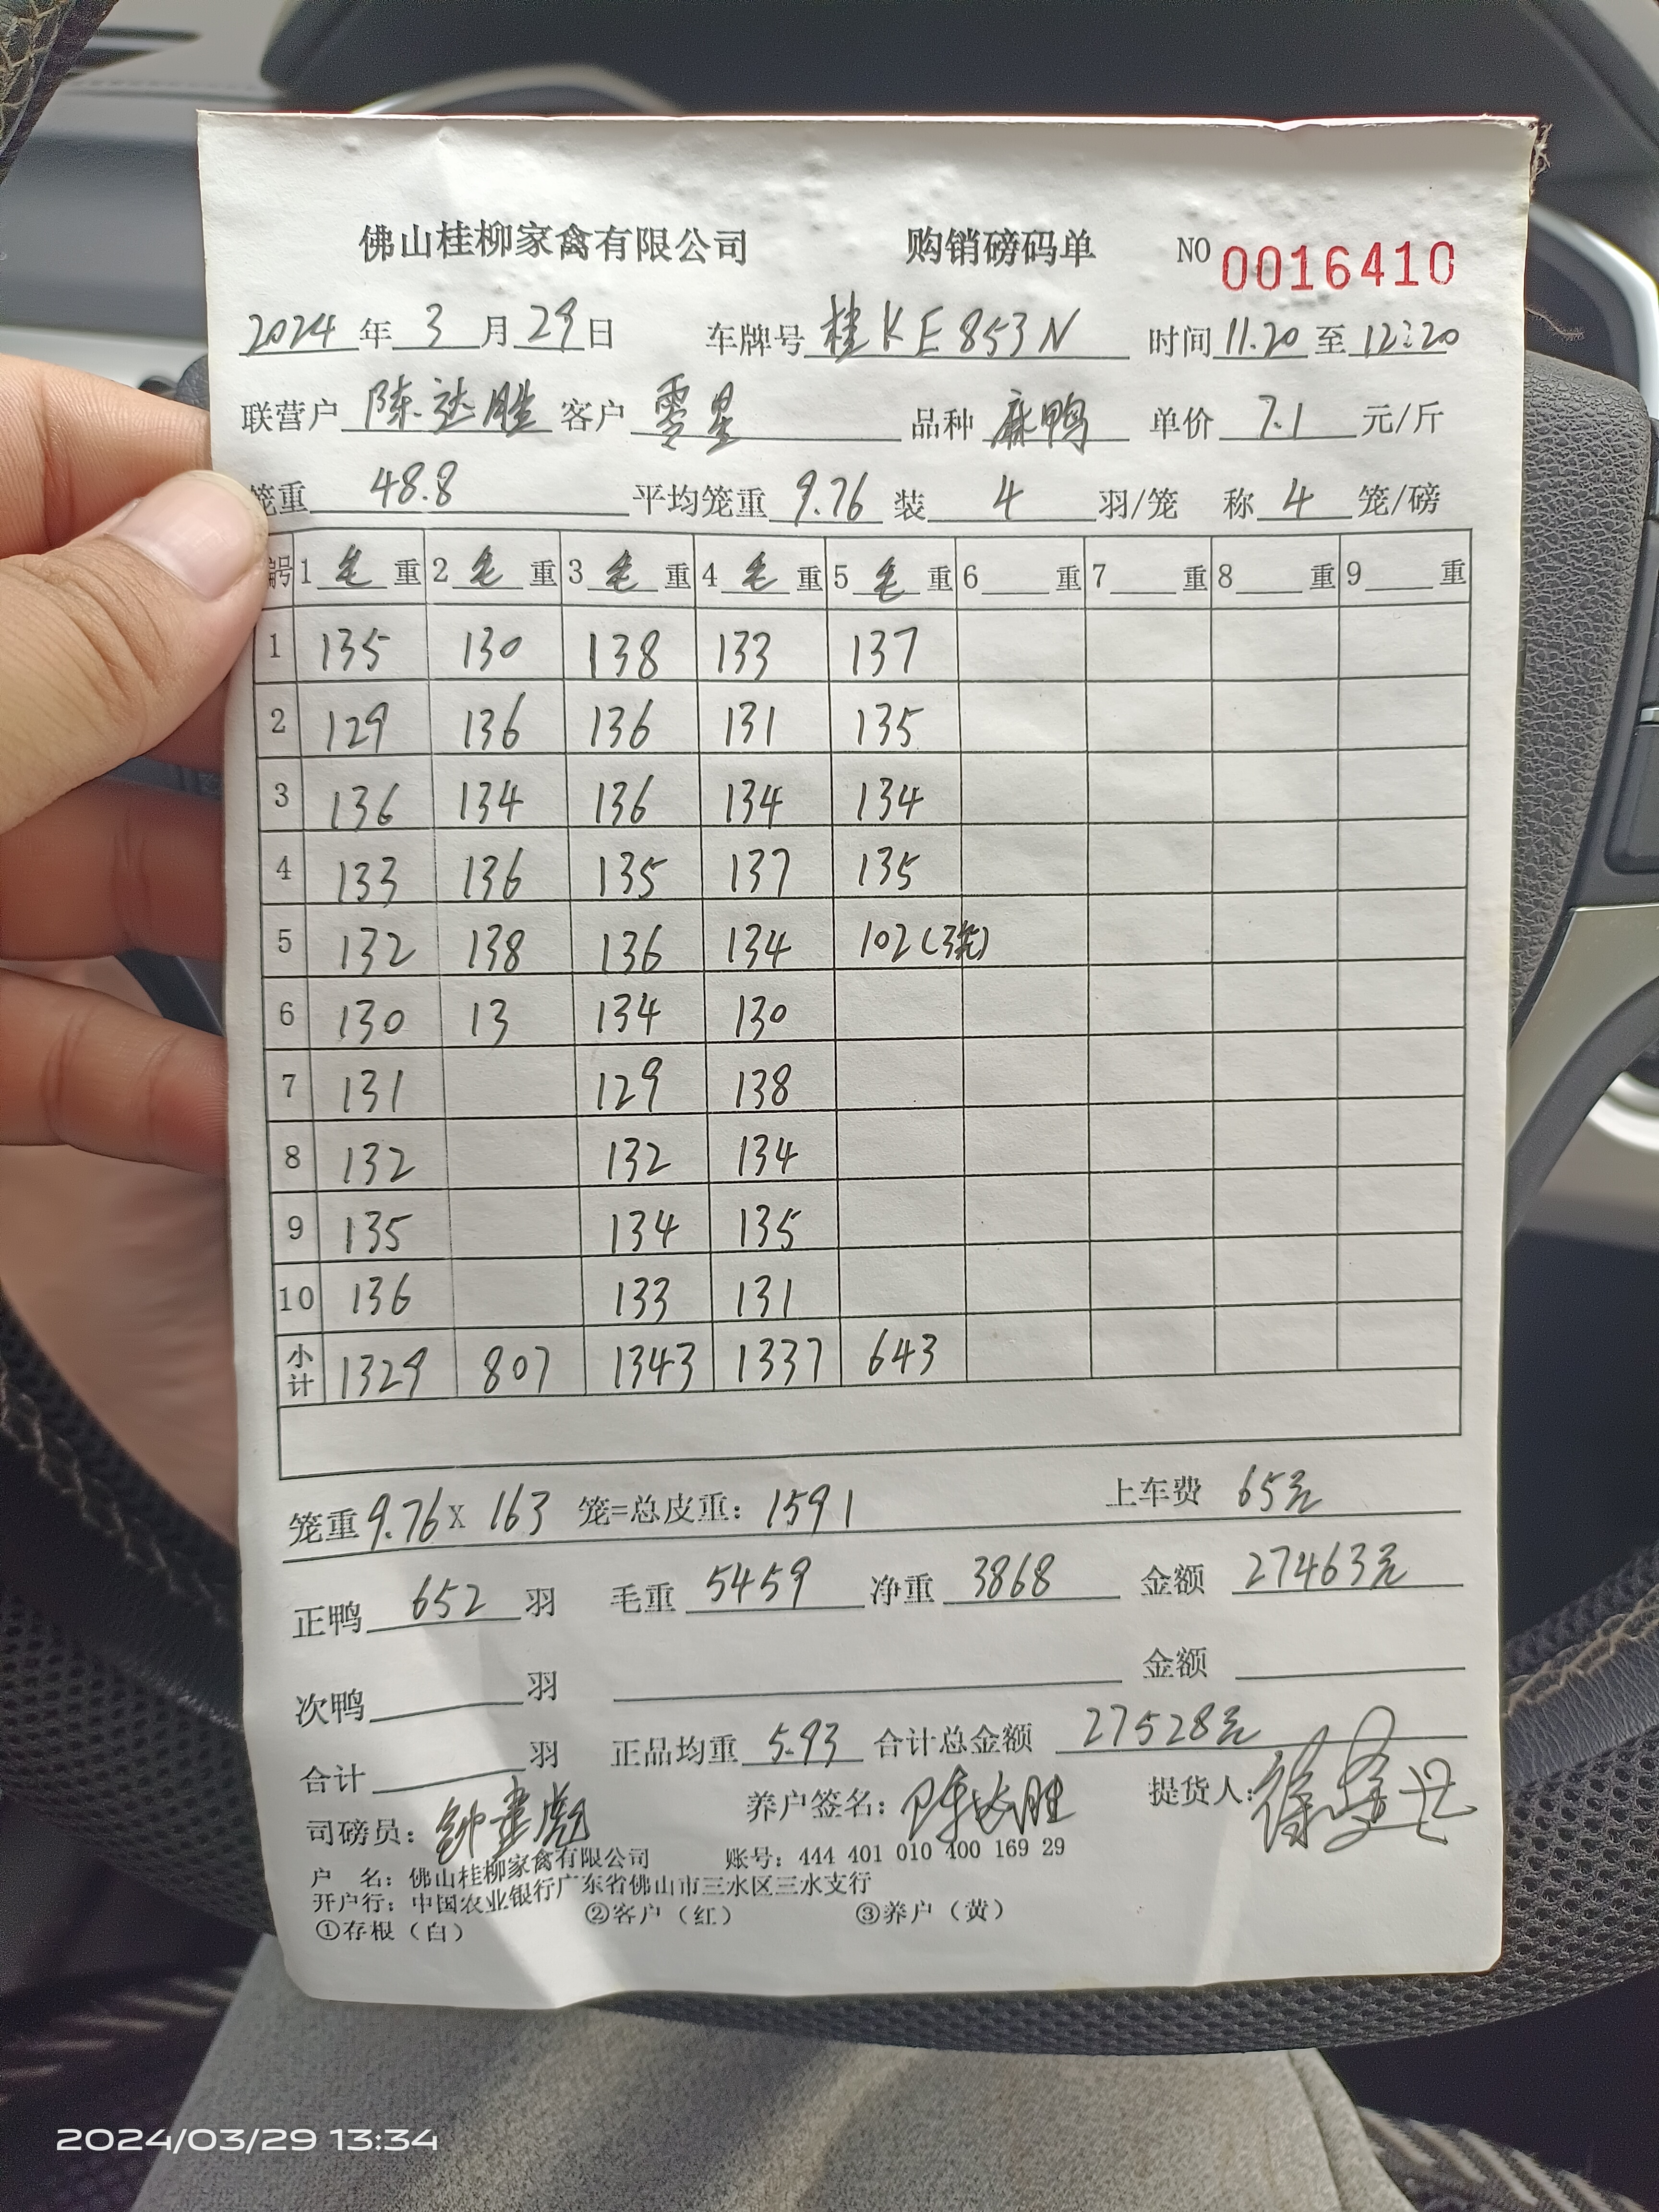 佛山桂柳家禽有限公司 购销磅码单 NO 0016410
2024 年 3 月 29 日 车牌号 桂KE853N 时间 11.20 至 12:20
联营户 陈达胜 客户 零星 品种 麻鸭 单价 7.1 元/斤
笼重 48.8 平均笼重 9.76 装 4 羽/笼 称 4 笼/磅
编号 1 毛 重 2 毛 重 3 毛 重 4 毛 重 5 毛 重 6 重 7 重 8 重 9 重
1 135 130 138 133 137
2 129 136 136 131 135
3 136 134 136 134 134
4 133 136 135 137 135
5 132 138 136 134 102(3笼)
6 130 13 134 130
7 131 129 138
8 132 132 134
9 135 134 135
10 136 133 131
小计 1329 807 1343 1337 643
笼重 9.76 X 163 笼=总皮重: 1591 上车费 65元
正鸭 652 羽 毛重 5459 净重 3868 金额 27463元
次鸭 羽 金额
合计 羽 正品均重 5.93 合计总金额 27528元
司磅员: 养户签名: 陈达胜 提货人:
户 名: 佛山桂柳家禽有限公司 账号: 444 401 010 400 169 29
开户行: 中国农业银行广东省佛山市三水区三水支行
①存根(白) ②客户(红) ③养户(黄)
2024/03/29 13:34